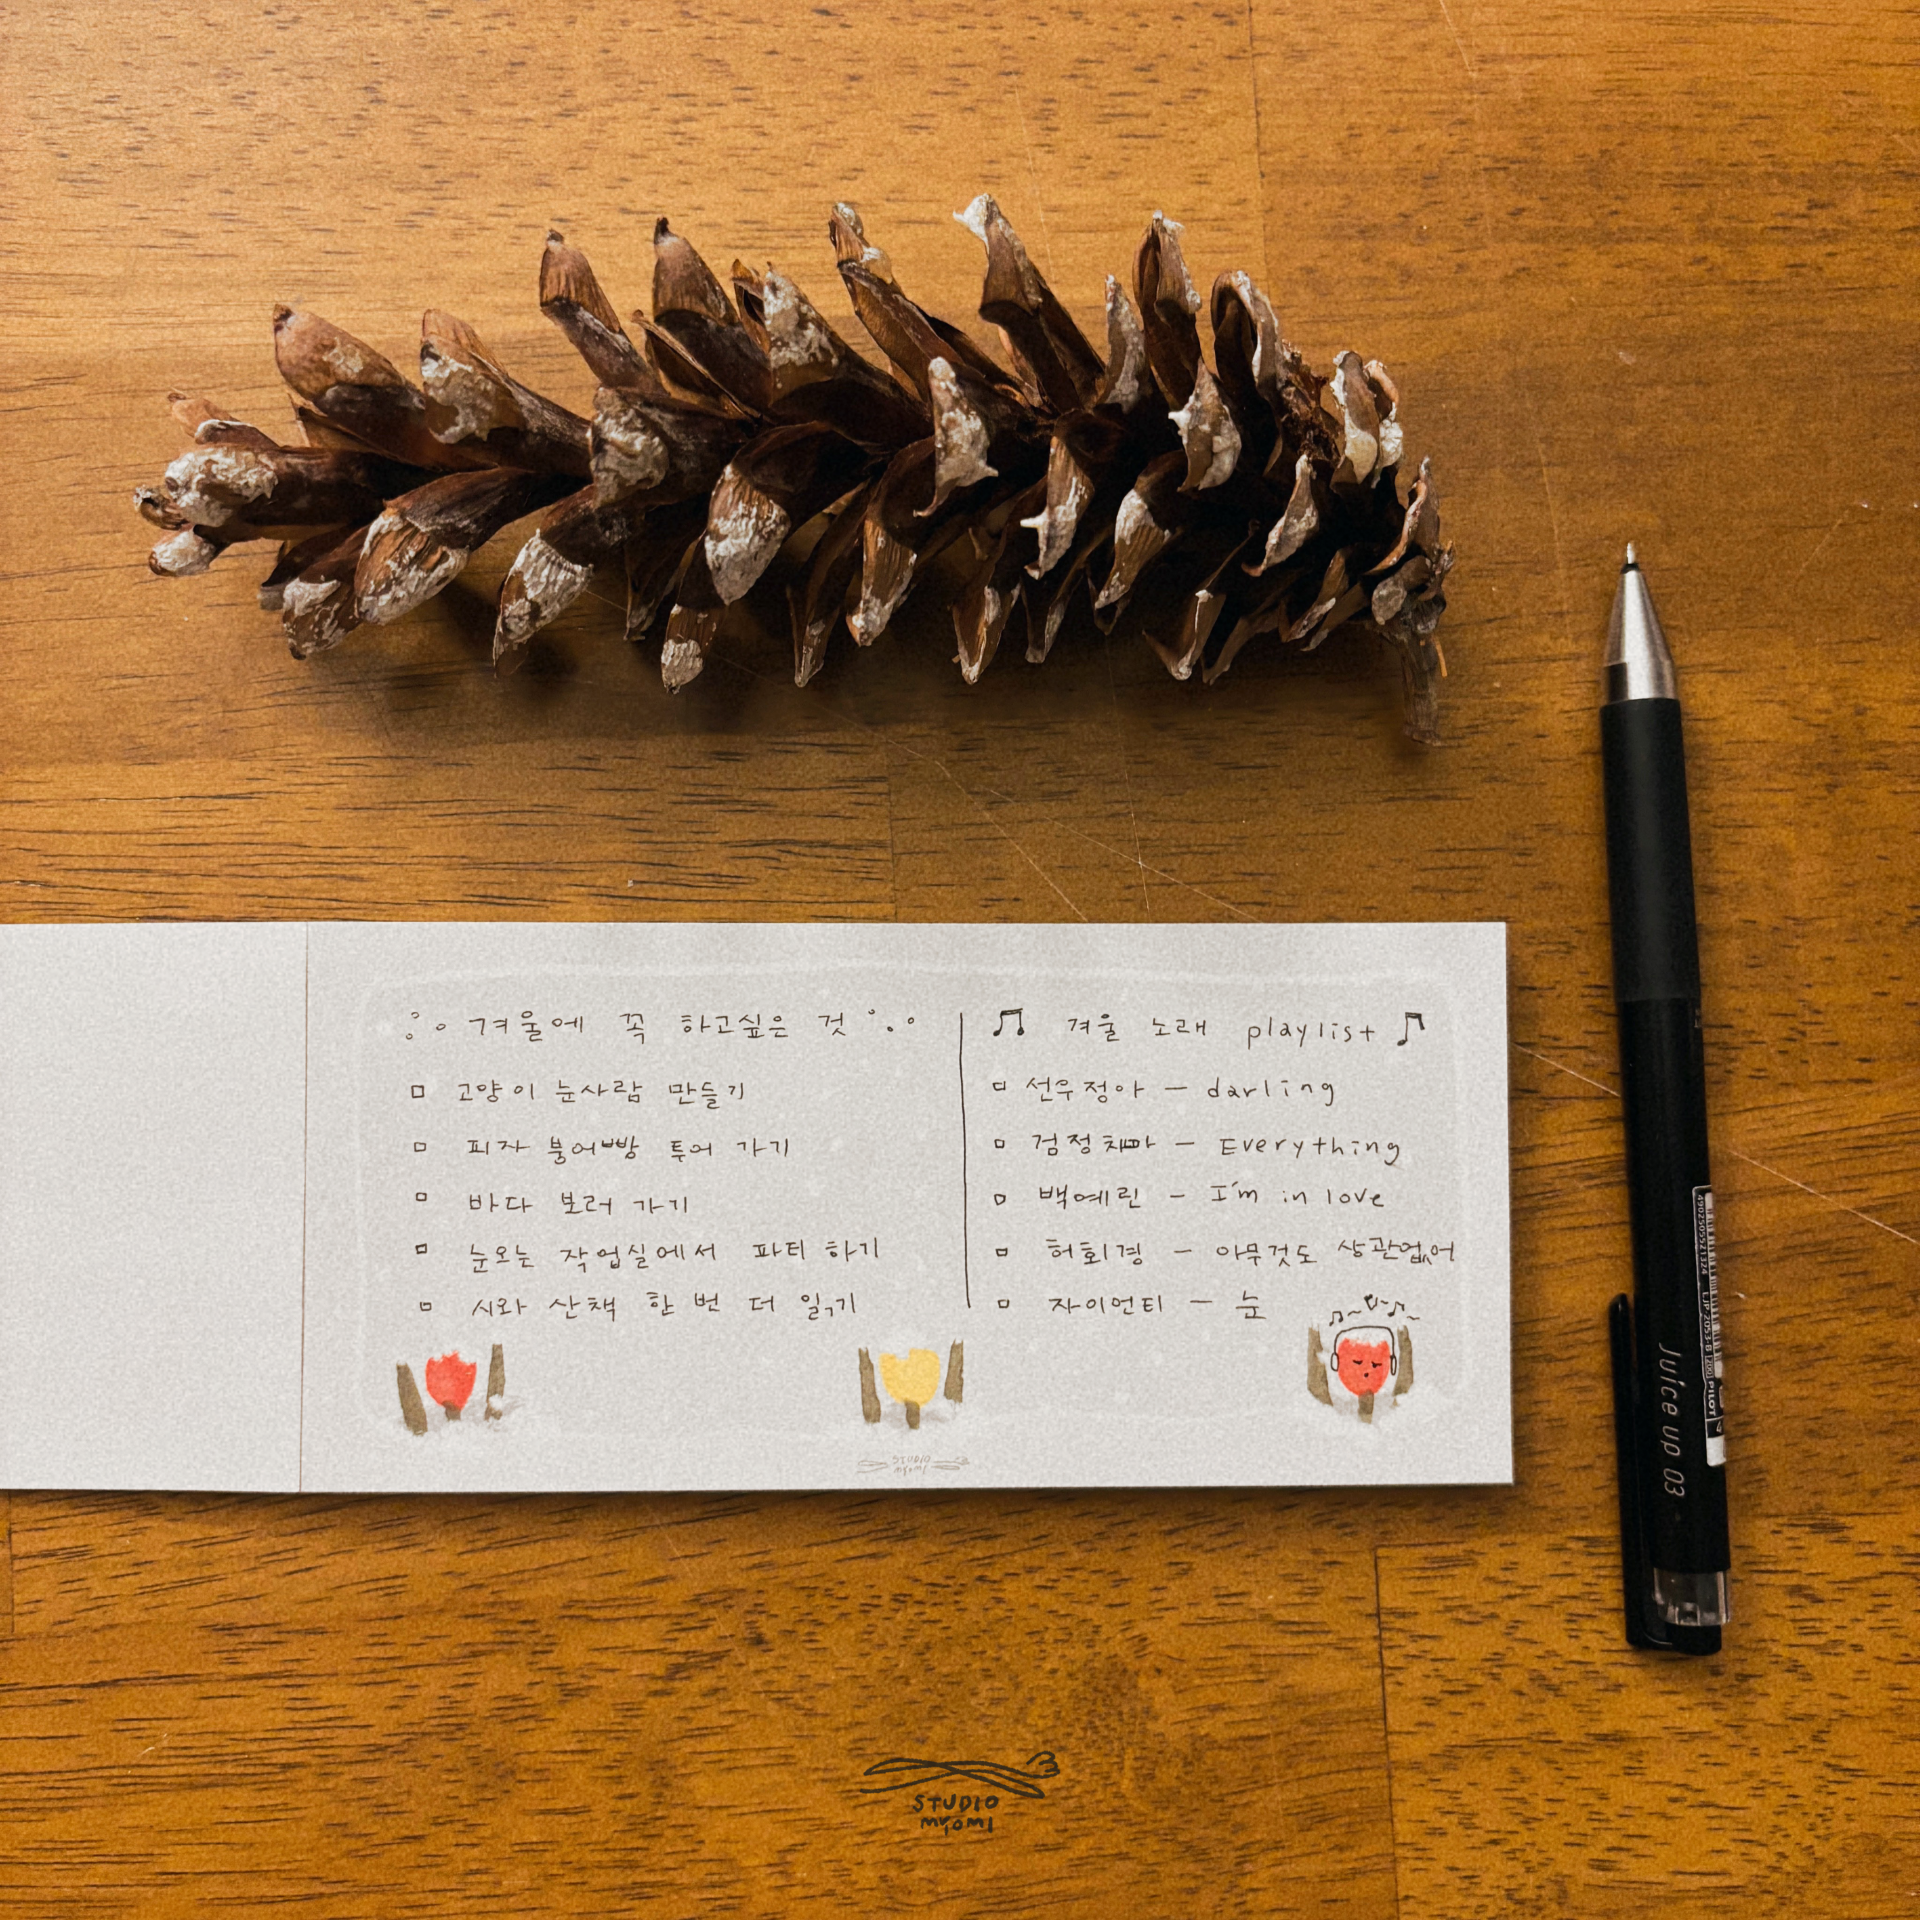 겨울에 꼭 하고싶은 것
고양이 눈사람 만들기
피자 붕어빵 투어 가기
바다 보러 가기
눈오는 작업실에서 파티 하기
시와 산책 한 번 더 읽기
겨울 노래 playlist
선우정아 - darling
검정치마 - Everything
백예린 - I'm in love
허회경 - 아무것도 상관없어
자이언티 - 눈
STUDIO
myomi
4902505521324 LJP-20S3-B [200] PILOT
Juice up 03
STUDIO
myomi